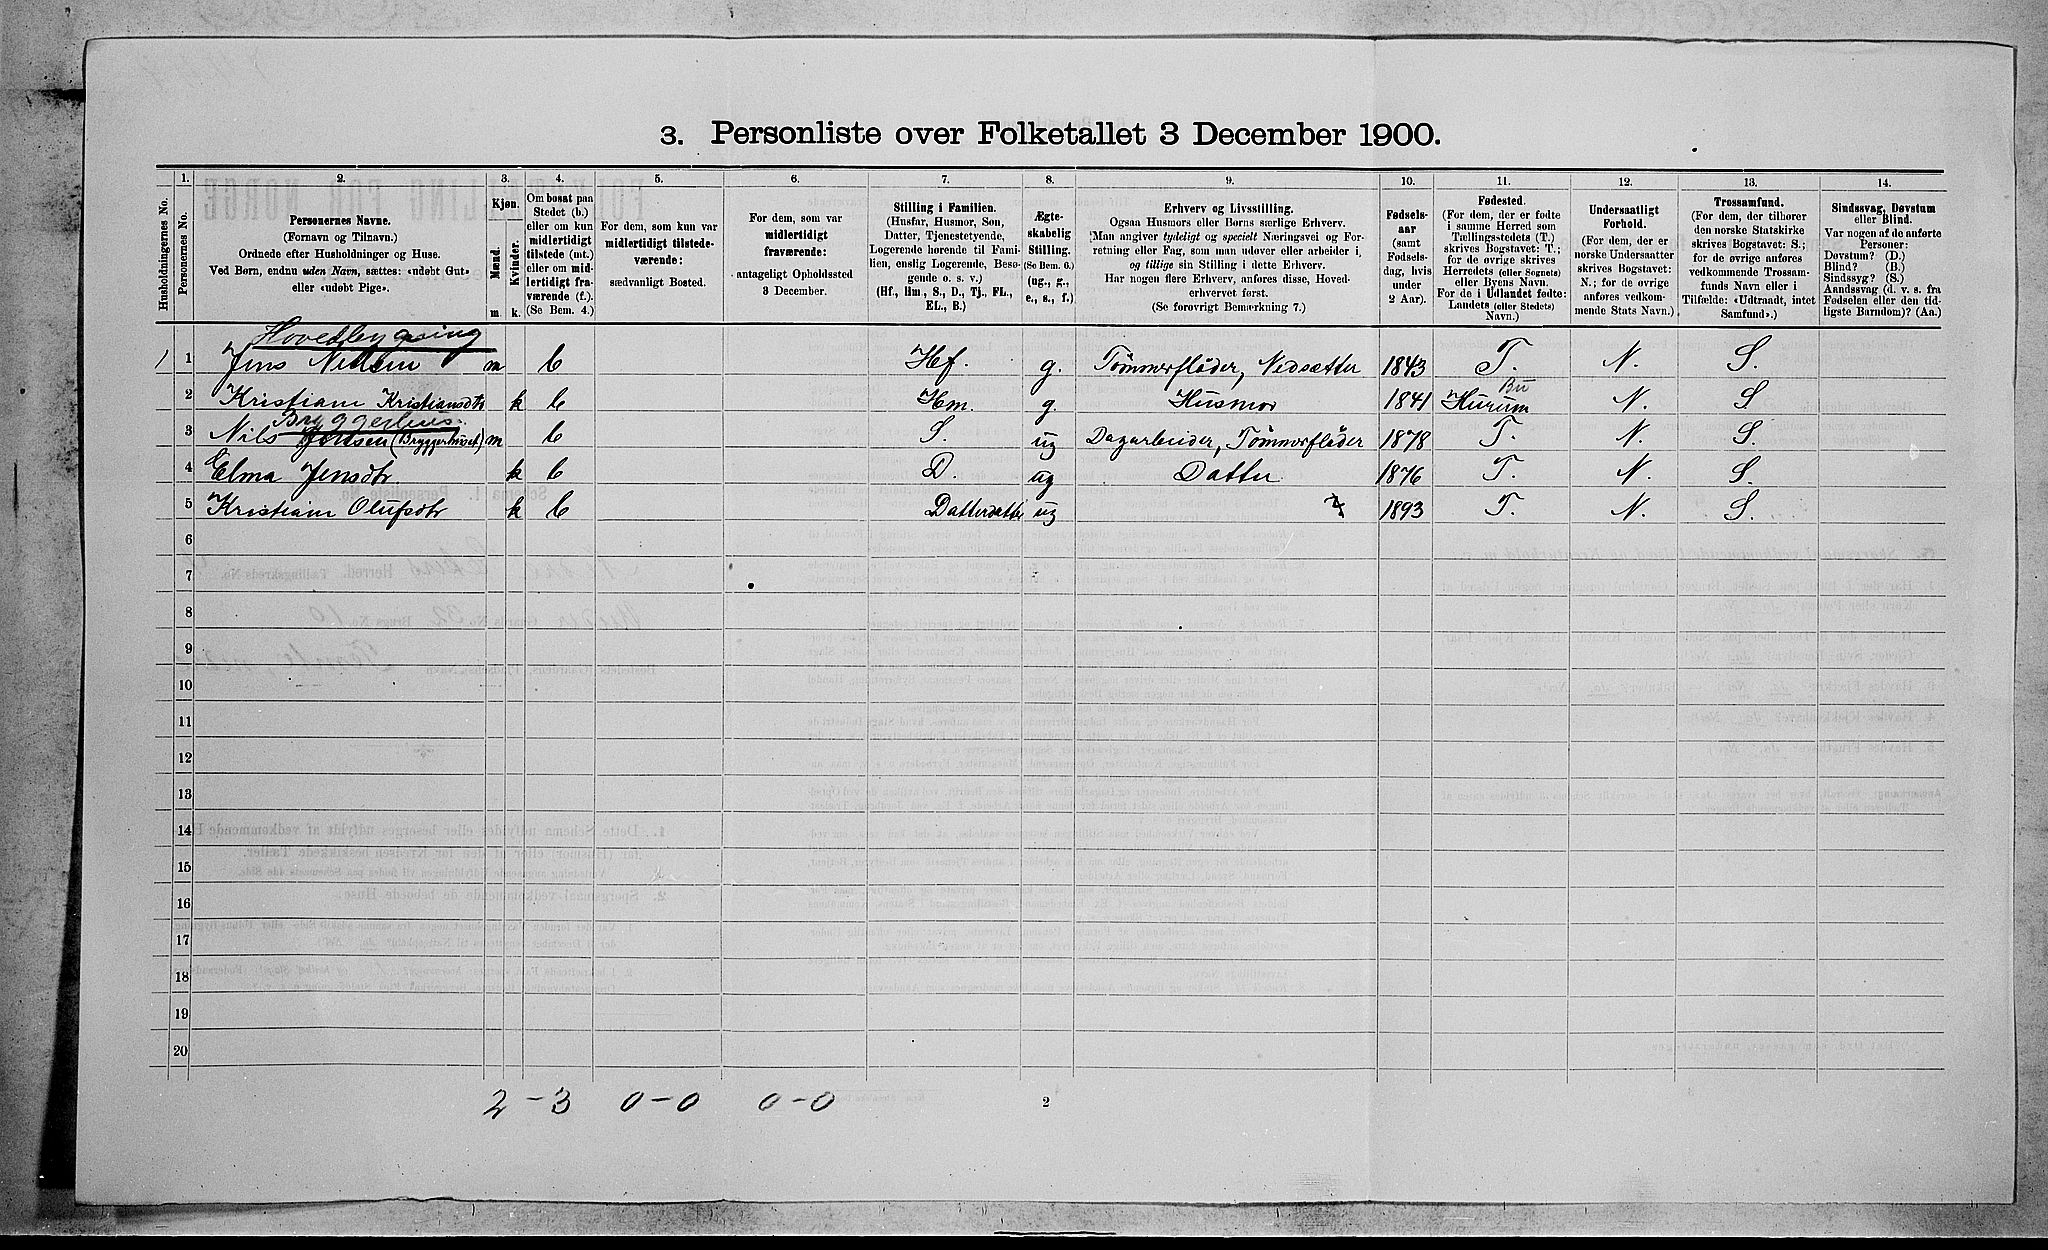 3. Personliste over Folketallet 3 December 1900.
1. 2. 3. 4. 5. 6. 7. 8. 9. 10. 11. 12. 13. 14.
Husholdningernes No.
Personernes No.
Personernes Navne.
(Fornavn og Tilnavn.)
Ordnede efter Husholdninger og Huse.
Ved Børn, endnu uden Navn, sættes: «udøbt Gut»
eller «udøbt Pige».
Kjøn.
Mænd.
Kvinder.
m. k.
Om bosat paa
Stedet (b.)
eller om kun
midlertidigt
tilstede (mt.)
eller om mid-
lertidigt fra-
værende (f.).
(Se Bem. 4.)
For dem, som kun var
midlertidigt tilstede-
værende:
sædvanligt Bosted.
For dem, som var
midlertidigt
fraværende:
antageligt Opholdssted
3 December.
Stilling i Familien.
(Husfar, Husmor, Søn,
Datter, Tjenestetyende,
Logerende hørende til Fami-
lien, enslig Logerende, Besø-
gende o. s. v.)
(Hf., Hm., S., D., Tj., FL.,
EL., B.)
Ægte-
skabelig
Stilling.
(Se Bem. 6.)
(ug., g.,
e., s., f.)
Erhverv og Livsstilling.
Ogsaa Husmors eller Børns særlige Erhverv.
(Man angiver tydeligt og specielt Næringsvei og For-
retning eller Fag, som man udøver eller arbeider i,
og tillige sin Stilling i dette Erhverv.
Har nogen flere Erhverv, anføres disse, Hoved-
erhvervet først.
(Se forøvrigt Bemærkning 7.)
Fødsels-
aar
(samt
Fødsels-
dag, hvis
under
2 Aar).
Fødested.
(For dem, der er fødte
i samme Herred som
Tællingsstedets (T.)
skrives Bogstavet: T.;
for de øvrige skrives
Herredets (eller Sognets)
eller Byens Navn.
For de i Udlandet fødte:
Landets (eller Stedets)
Navn.)
Undersaatligt
Forhold.
(For dem, der er
norske Undersaatter
skrives Bogstavet:
N.; for de øvrige
anføres vedkom-
mende Stats Navn.)
Trossamfund.
(For dem, der tilhører
den norske Statskirke
skrives Bogstavet: S.;
for de øvrige anføres
vedkommende Trossam-
funds Navn eller i
Tilfælde: «Udtraadt, intet
Samfund».)
Sindssvag, Døvstum
eller Blind.
Var nogen af de anførte
Personer:
Døvstum? (D.)
Blind? (B.)
Sindssyg? (S.)
Aandssvag (d. v. s. fra
Fødselen eller den tid-
ligste Barndom)? (Aa.)
Hovedbygning
1 1 Jens Nilsen m b Hf. g. Tømmerfløder, Nedsætter 1843 T. N. S.
2 Kristiane Kristiansdtr k b Hm. g. Husmor 1841 Hurum Bu N. S
Bryggerhus.
3 Nils Jensen (Bryggerhuset) m b S. ug Dagarbeider, Tømmerfløder 1878 T. N. S.
4 Elma Jensdtr k b D. ug Datter 1876 T. N. S.
5 Kristiane Olufsdtr k b Datterdatter ug 7 1893 T. N. S.
6
7
8
9
10
11
12
13
14
15
16
17
18
19
20
2 - 3 0-0 0-0
2